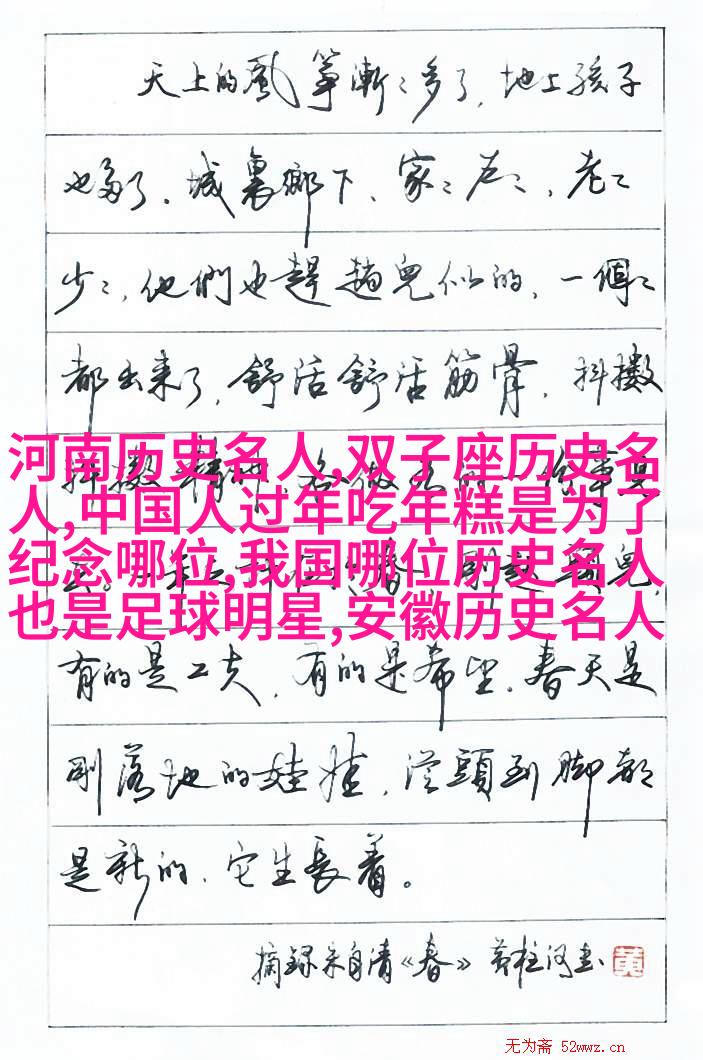 天上的風箏漸〻多了，地上孩子
也多了。城裏鄉下、家〻户〻，老〻
少〻，他們也趕趟兒似的，一個〻
都出来了，舒活舒活筋骨，抖擻
河南历史名人,双子座历史名
人,中国人过年吃年糕是为了
纪念哪位,我国哪位历史名人
也是足球明星,安徽历史名人
有的是工夫，有的是希望。春天是
剛落地的娃娃，從頭到脚都
是新的，它生長着。
摘録朱自清《春》 黄柱河书
黄
无为斋 52wwz.cn